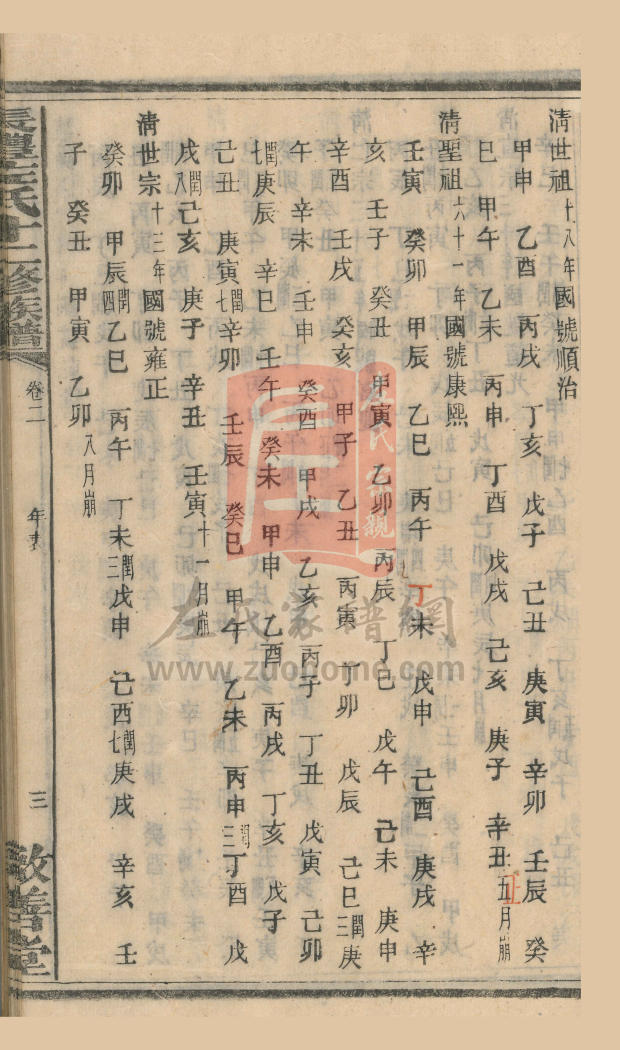 清世祖十八年國號順治
甲申 乙酉 丙戌 丁亥 戊子 己丑 庚寅 辛卯 壬辰 癸
巳 甲午 乙未 丙申 丁酉 戊戌 己亥 庚子 辛丑五月崩
清聖祖六十一年國號康熙
壬寅 癸卯 甲辰 乙巳 丙午 丁未 戊申 己酉 庚戌 辛
亥 壬子 癸丑 甲寅 乙卯 丙辰 丁巳 戊午 己未 庚申
辛酉 壬戌 癸亥 甲子 乙丑 丙寅 丁卯 戊辰 己巳閏三庚
午 辛未 壬申 癸酉 甲戌 乙亥 丙子 丁丑 戊寅 己卯
閏七庚辰 辛巳 壬午 癸未 甲申 乙酉 丙戌 丁亥 戊子
己丑 庚寅閏七辛卯 壬辰 癸巳 甲午 乙未 丙申閏三丁酉 戊
戌閏八己亥 庚子 辛丑 壬寅十一月崩
清世宗十三年國號雍正
癸卯 甲辰閏四乙巳 丙午 丁未閏三戊申 己酉閏七庚戌 辛亥 壬
子 癸丑 甲寅 乙卯八月崩
氏十二修族譜
卷二
年表
三
敬善堂
左氏家譜網
www.zuohome.com